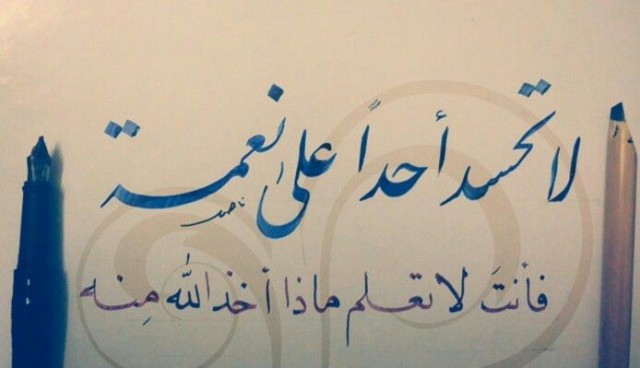 لا تحسد أحداً على نعمة
فأنتَ لا تعلم ماذا أخذ الله مِنه